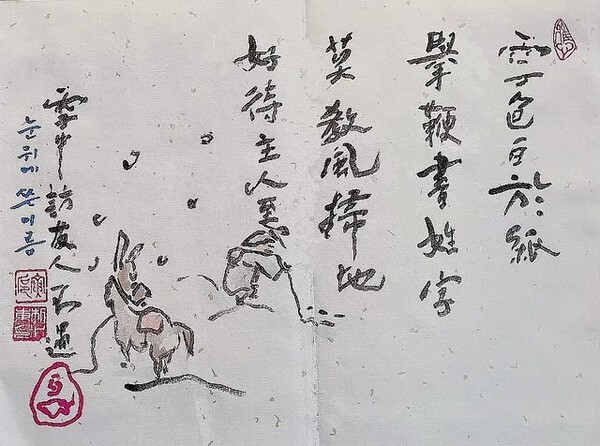 雪色白於紙
擧鞭書姓字
莫敎風掃地
好待主人至
雪中訪友人不遇
눈 위에 쓴 이름